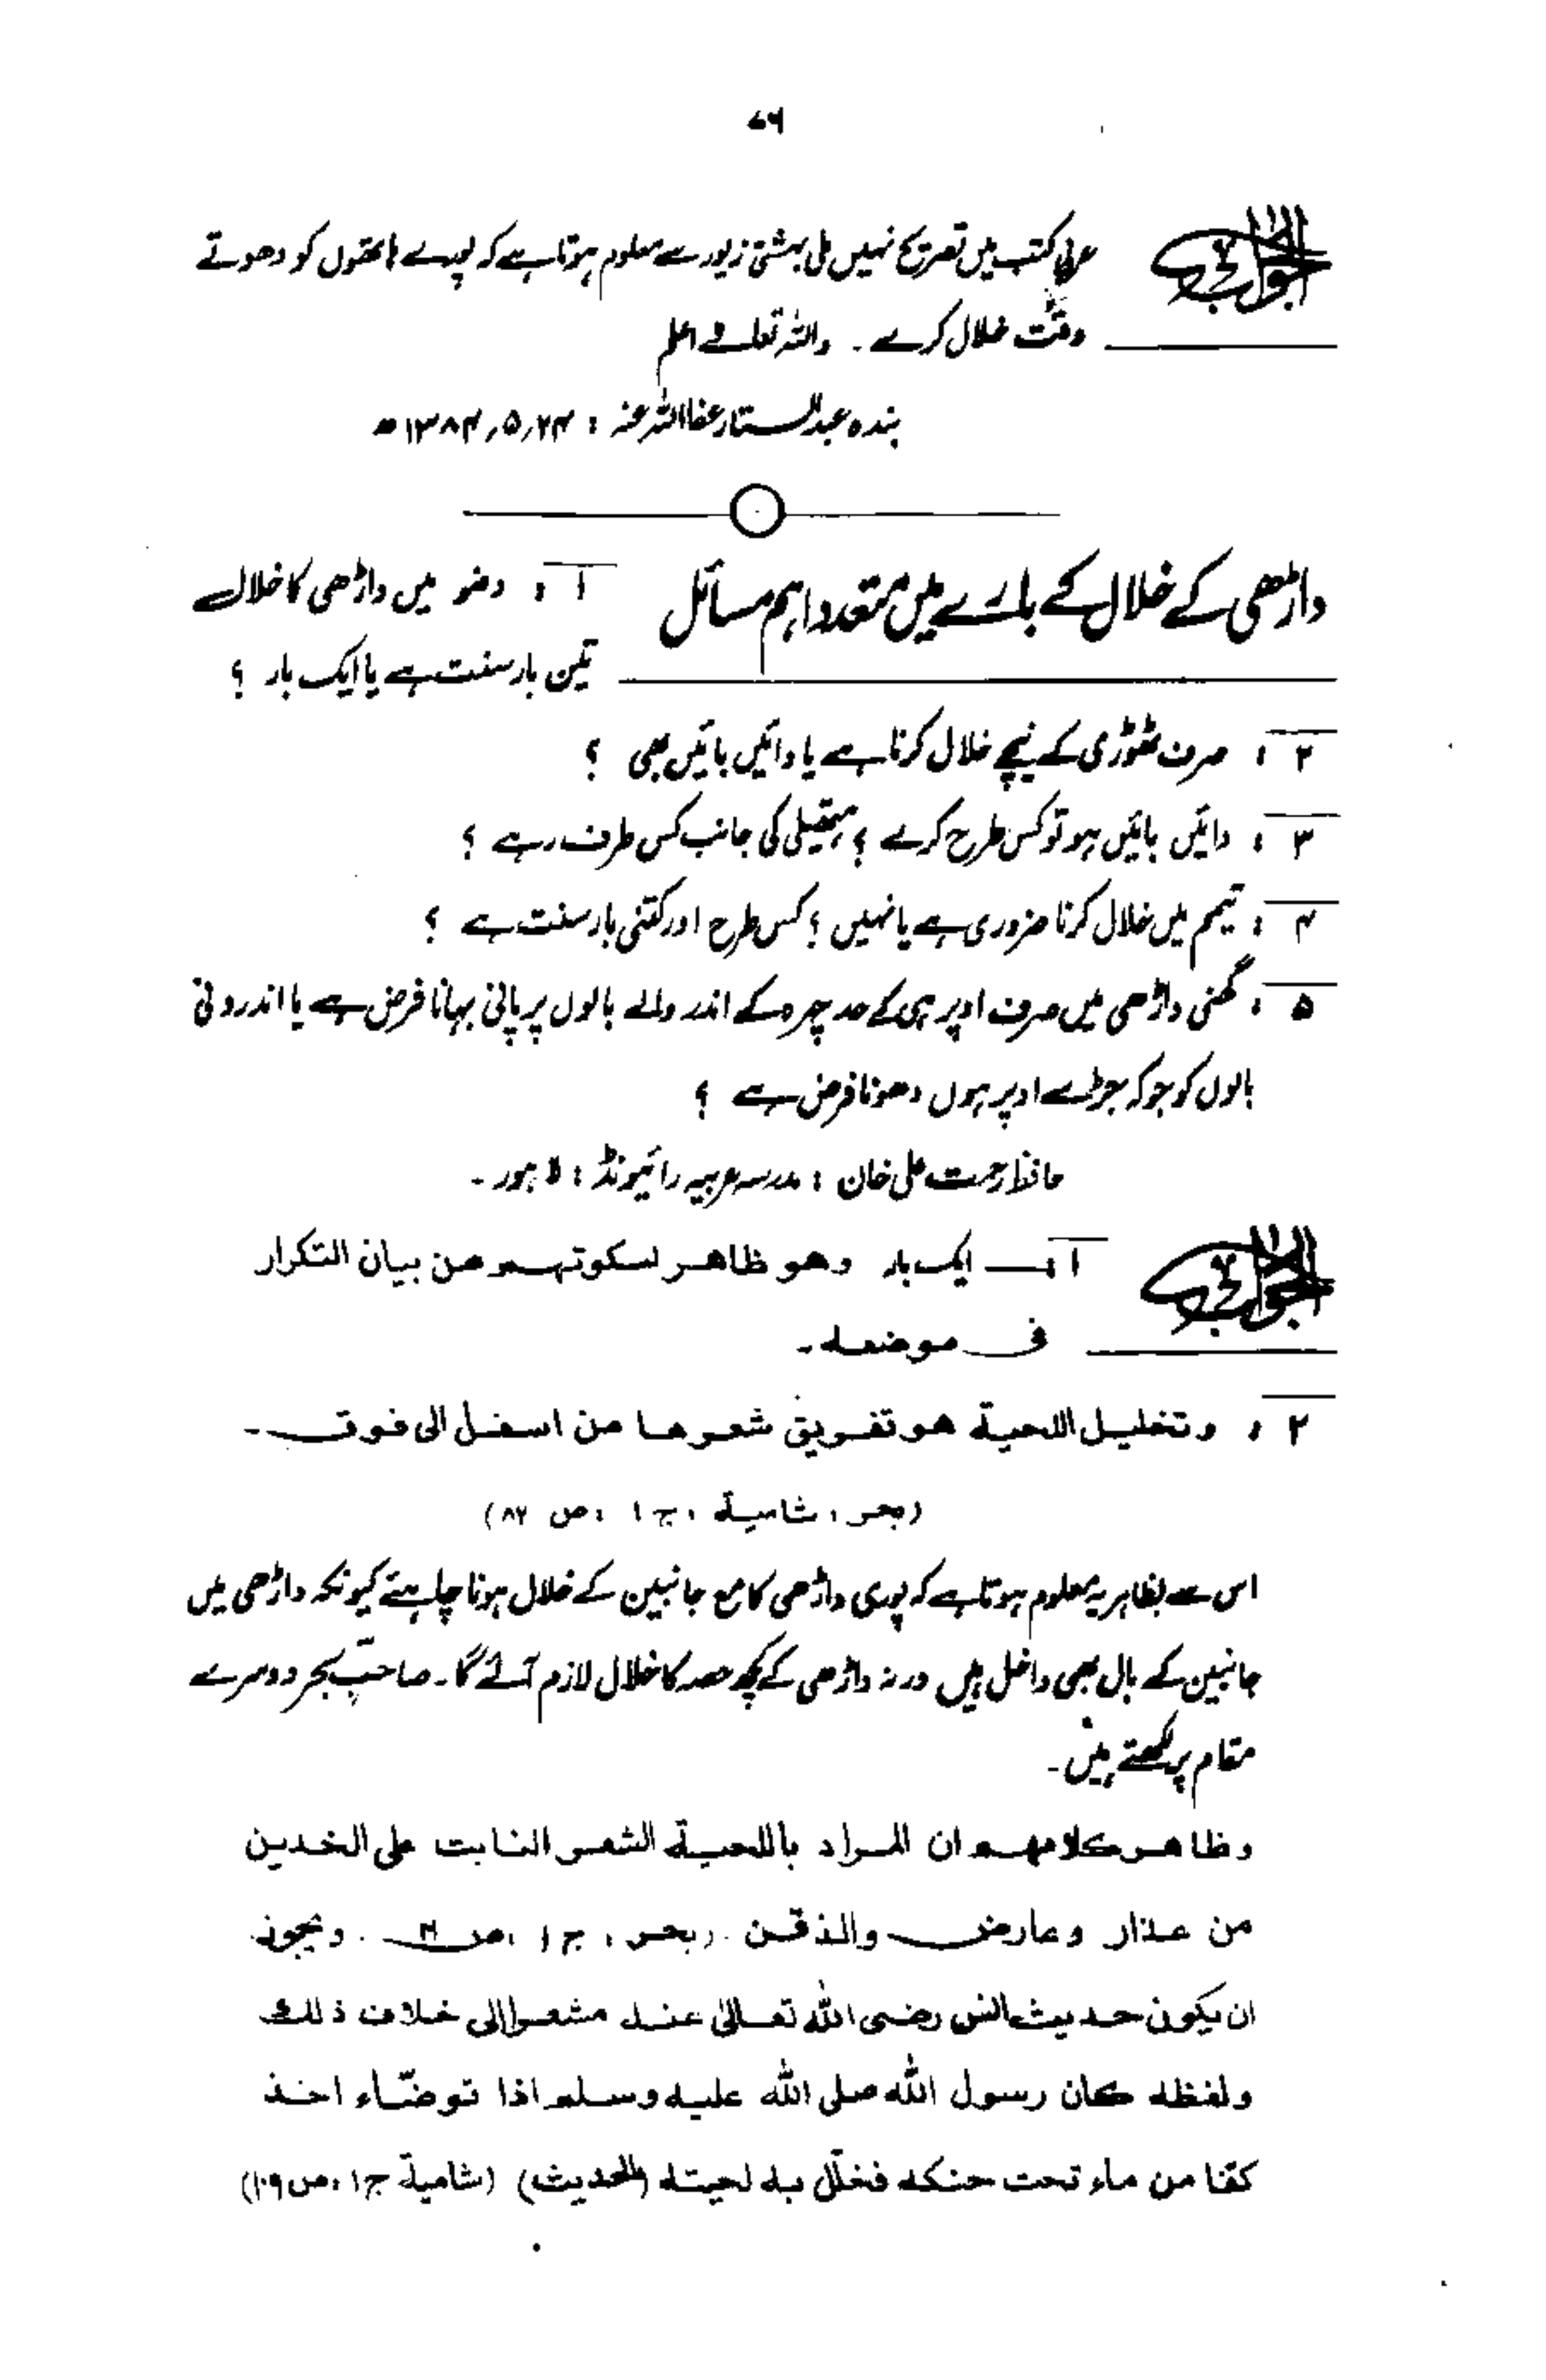 ۷۶
الجواب عربی کتب میں تصریح نہیں ملی بہشتی زیور سے معلوم ہوتا ہے کہ پہلے ہاتھوں کو دھوتے
وقت خلال کرے ۔ واللہ تعالےٰ اعلم
بندہ عبدالستار عفا اللہ عنہ : ۲۴؍۵؍۱۳۸۴ھ
داڑھی کے خلال کے بارے میں متعدد اہم مسائل ۱ : وضو میں داڑھی کا خلال
تین بار سنت ہے یا ایک بار ؟
۲ : صرف ٹھوڑی کے نیچے خلال کرنا ہے یا دائیں بائیں بھی ؟
۳ : دائیں بائیں ہو تو کس طرح کرے ؟ ہتھیلی کی جانب کس طرف رہے ؟
۴ : تیمم میں خلال کرنا ضروری ہے یا نہیں ؟ کس طرح اور کتنی بار سنت ہے ؟
۵ : گھنی داڑھی میں صرف اوپر ہی کے حد چہرہ کے اندر والے بالوں پر پانی بہانا فرض ہے یا اندرونی
بالوں کو جو کہ جبڑے اوپر ہوں دھونا فرض ہے ؟
حافظ رحمت علی خان : مدرسہ عربیہ رائیونڈ : لاہور ۔
الجواب ۱ : ایک بار وهو ظاهر لسكوتهم عن بيان التكرار
فی موضعه ۔
۲ : وتخليل اللحية هو تفريق شعرها من اسفل الى فوق ۔
(بحر ، شامية ، ج ۱ ، ص ۸۷)
اس سے بظاہر یہ معلوم ہوتا ہے کہ پوری داڑھی کا مع جانبین کے خلال ہونا چاہیئے کیونکہ داڑھی میں
جانبین کے بال بھی داخل ہیں ورنہ داڑھی کے کچھ حصہ کا خلال لازم آئے گا ۔ صاحبِ بحر دوسرے
مقام پر لکھتے ہیں ۔
وظاهر كلامهم ان المراد باللحية الشعر النابت على الخدين
من عذار وعارض والذقن . (بحر ، ج ۱ ، ص . ويجوز
ان يكون حديث انس رضى الله تعالىٰ عنه مشعرا الى خلاف ذلك
ولفظه كان رسول الله صلى الله عليه وسلم اذا توضّاء اخذ
كفّا من ماء تحت حنكه فخلّل به لحيته (الحديث) (شامية ج ۱ ، ص ۱۰۹)